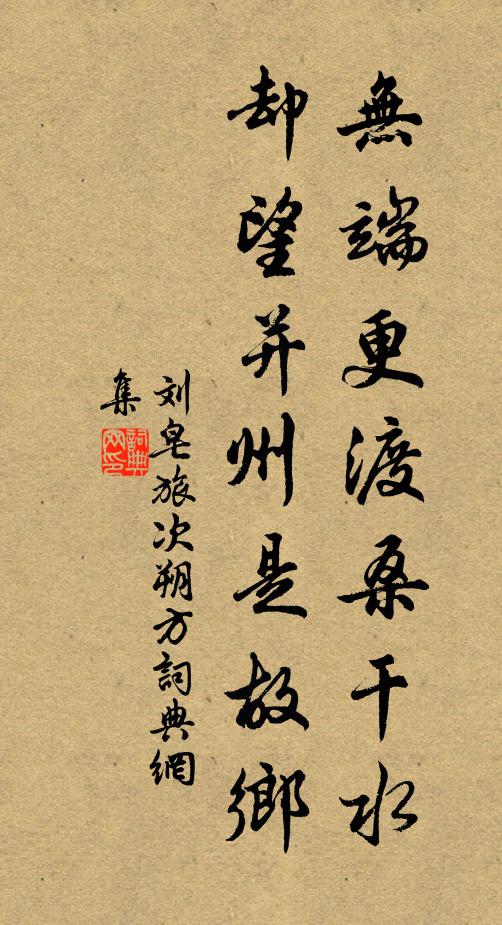 無端更渡桑干水
却望并州是故鄉
刘皂旅次朔方詞典網
集
詞典網印